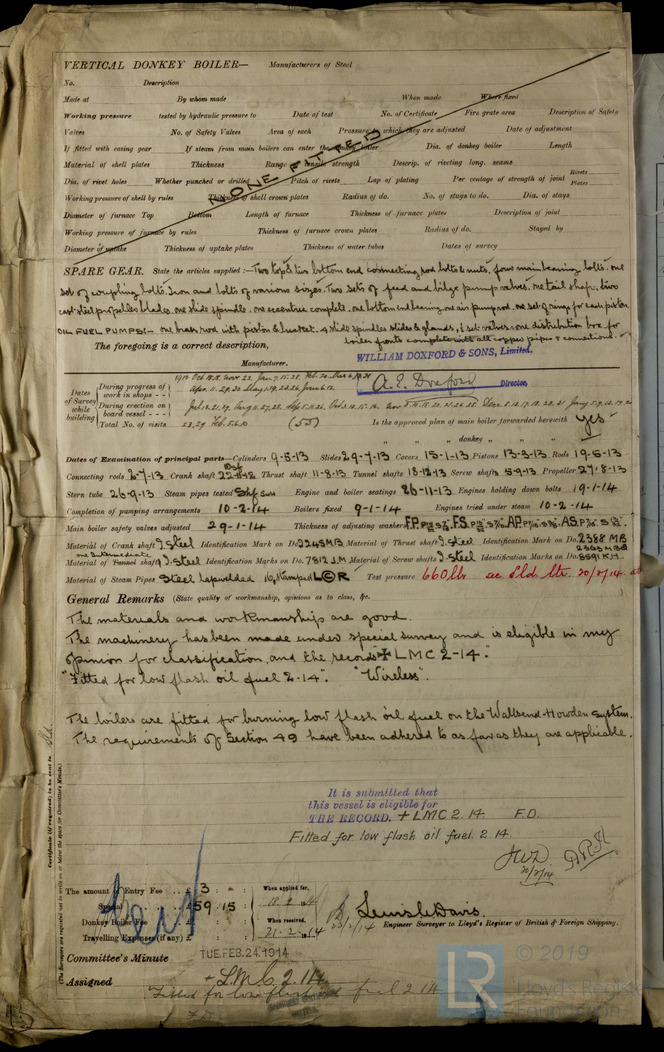 VERTICAL DONKEY BOILER— Manufacturers of Steel
No. Description
Made at By whom made When made Where fixed
Working pressure tested by hydraulic pressure to Date of test No. of Certificate Fire grate area Description of Safety
Valves No. of Safety Valves Area of each Pressure to which they are adjusted Date of adjustment
If fitted with easing gear If steam from main boilers can enter the donkey boiler Dia. of donkey boiler Length
Material of shell plates Thickness Range of tensile strength Descrip. of riveting long. seams
Dia. of rivet holes Whether punched or drilled Pitch of rivets Lap of plating Per centage of strength of joint Rivets Plates
Working pressure of shell by rules Thickness of shell crown plates Radius of do. No. of stays to do. Dia. of stays
Diameter of furnace Top Bottom Length of furnace Thickness of furnace plates Description of joint
Working pressure of furnace by rules Thickness of furnace crown plates Radius of do. Stayed by
Diameter of uptake Thickness of uptake plates Thickness of water tubes Dates of survey
NONE FITTED
SPARE GEAR. State the articles supplied:— Two top & two bottom end connecting rod bolts & nuts, four main bearing bolts. one
set of coupling bolts. Iron and bolts of various sizes. Two sets of feed and bilge pump valves. one tail shaft, two
cast steel propeller blades. one slide spindle. one eccentric complete. one bottom end bearing. one air pump rod. one set of rings for each piston
OIL FUEL PUMPS:— one brass rod with piston & bucket. 4 slide spindles slides & glands, 1 set valves & one distribution box for
boiler fronts complete with all copper pipes & connections.
The foregoing is a correct description,
WILLIAM DOXFORD & SONS, Limited.
Manufacturer.
A. E. Doxford Director.
Dates of Survey while building
During progress of work in shops - -
During erection on board vessel - - -
Total No. of visits (55)
Is the approved plan of main boiler forwarded herewith Yes
" " " donkey " " "
Dates of Examination of principal parts—Cylinders 9-5-13 Slides 29-7-13 Covers 15-1-13 Pistons 13-3-13 Rods 19-6-13
Connecting rods 2-7-13 Crank shaft Thrust shaft 11-8-13 Tunnel shafts 18-12-13 Screw shaft 5-9-13 Propeller 27-8-13
Stern tube 26-9-13 Steam pipes tested Engine and boiler seatings 26-11-13 Engines holding down bolts 19-1-14
Completion of pumping arrangements 10-2-14 Boilers fixed 9-1-14 Engines tried under steam 10-2-14
Main boiler safety valves adjusted 29-1-14 Thickness of adjusting washers
Material of Crank shaft I. Steel Identification Mark on Do. 2245 MB Material of Thrust shaft I. Steel Identification Mark on Do. 2388 MB
Material of Tunnel shafts I. Steel Identification Marks on Do. 7812 J.M Material of Screw shafts I. Steel Identification Marks on Do.
Material of Steam Pipes Steel lapwelded Stamped L©R Test pressure 660 lbs see Sld ltr. 20/2/14
General Remarks (State quality of workmanship, opinions as to class, &c.
The materials and workmanship are good.
The machinery has been made under special survey and is eligible in my
opinion for classification, and the record "+ LMC 2-14."
"Fitted for low flash oil fuel 2-14". "Wireless".
The boilers are fitted for burning low flash oil fuel on the Wallsend-Howden system.
The requirements of Section 49 have been adhered to as far as they are applicable.
It is submitted that
this vessel is eligible for
THE RECORD. + LMC 2.14 F.D.
Fitted for low flash oil fuel. 2.14.
20/2/14
Certificate (if required) to be sent to
(The Surveyors are requested not to write on or below the space for Committee's Minute.)
The amount of Entry Fee .. £ 3 : - :
Special £ 59 : 15 :
Donkey Boiler Fee £
Travelling Expenses (if any) £
When applied for,
When received,
21-2-14
Lewis C Davis.
Engineer Surveyor to Lloyd's Register of British & Foreign Shipping.
Committee's Minute TUE. FEB. 24. 1914
Assigned + LMC 2.14
Fitted for low flash oil fuel 2.14
F.D.
© 2019
LR
Lloyd's Register
Foundation